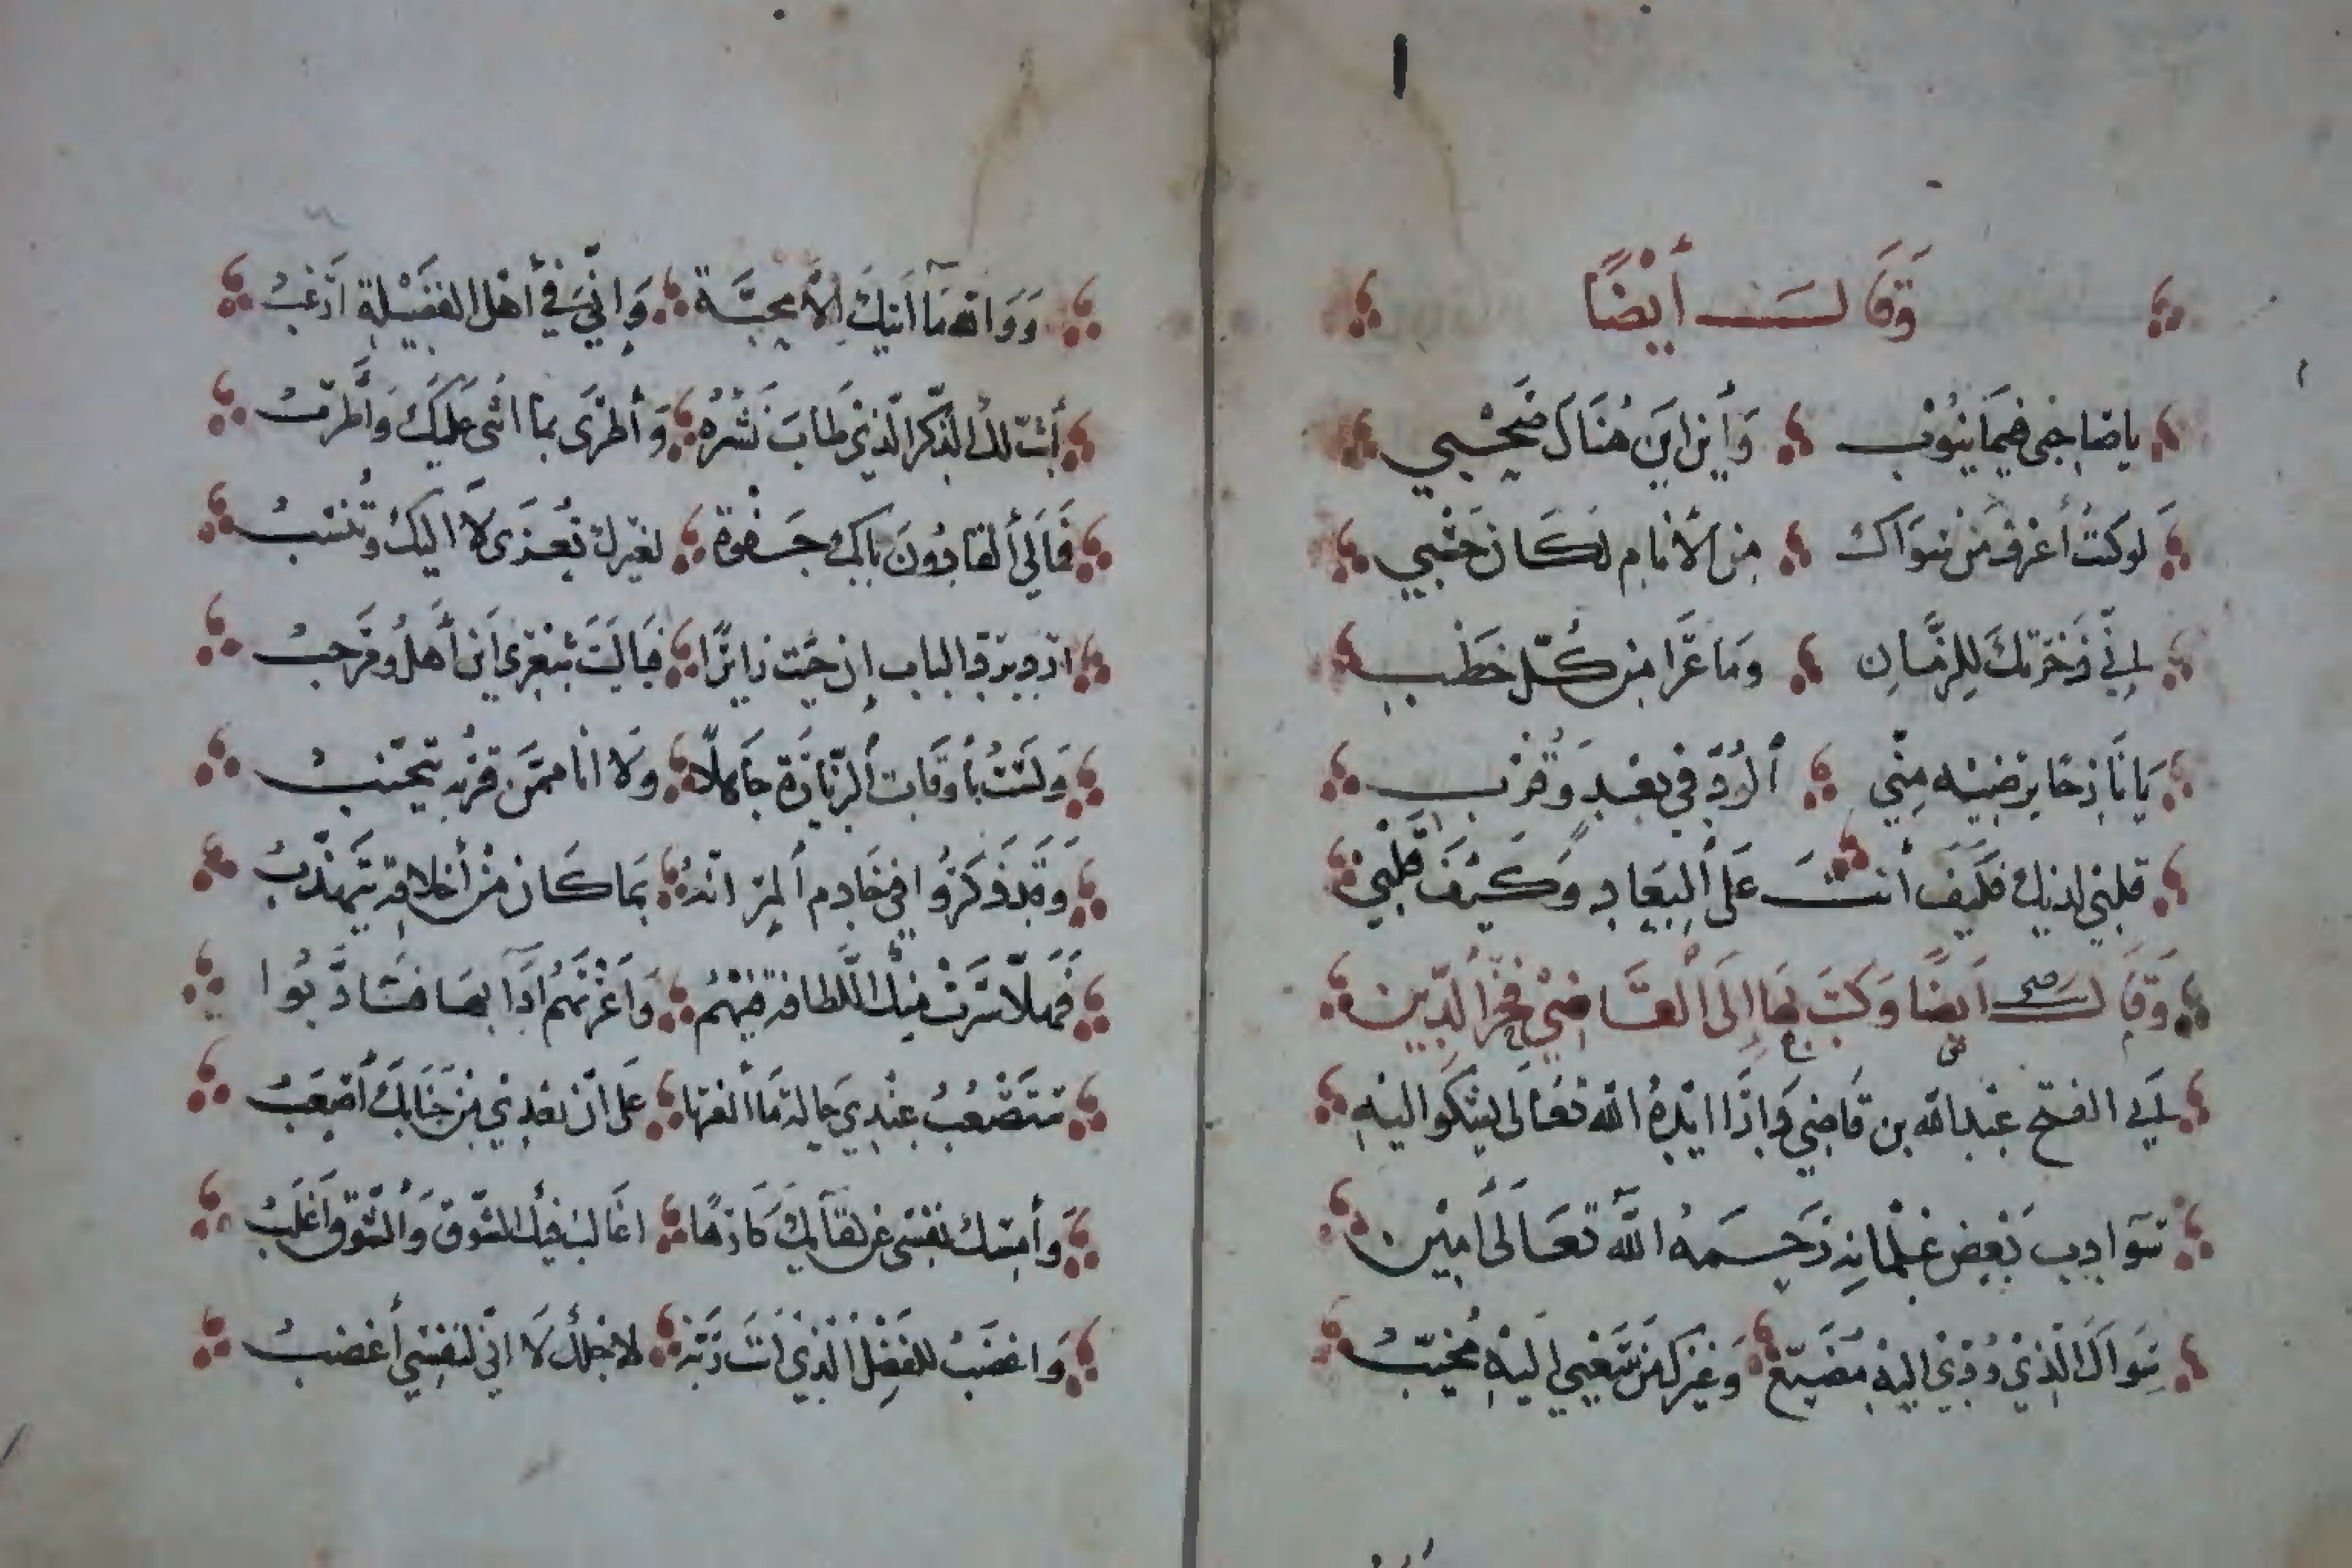 وقال أيضًا
يا صاحبي فيما ينوب وأين أين هناك صحبي
لو كنت أعرف من سواك من الأنام لكان حسبي
إني ذخرتك للزمان وما عرا من كل خطب
يا نازحا يرضيه مني ألود في بعد وقرب
قلبي لديك فكيف أنت على البعاد وكيف قلبي
وقال أيضا وكتب بها إلى القاضي فخر الدين
أبي الفتح عبد الله بن قاضي داذا ايده الله تعالى يشكوا اليه
سوادب بعض غلمانه رحمه الله تعالى امين
سواك الذي ودي اليه مضيع وغيرك من سعيي اليه مخيب
ووالله ما أتيك إلا محبة وإني في أهل الفضيلة أرغب
أبث لك الذكر الذي طاب نشره وأطرى بما اثنى عليك وأطرب
فمالي ألقا دون بابك جفوة لغيرك تعزى لا اليك وتنسب
ارد برد الباب إن جيت زايرا فياليت شعري أين أهل ومرحب
ولست بأوقات الزيارة جاهلا ولا انا ممن قربه يتجنب
وقد ذكروا في خادم المرء انه بما كان من أخلاقه يتهذب
فهلا سرت منك اللطافة فيهم وأعرتهم آدابها فتادبوا
تصعب عندي حالة ما ألفتها على أن بعدي من جنابك أصعب
وأمسك نفسي عن لقائك كارها اغالب فيك الشوق والشوق أغلب
واغضب للفضل الذي أنت ربه لاجلك لا اني لنفسي أغضب